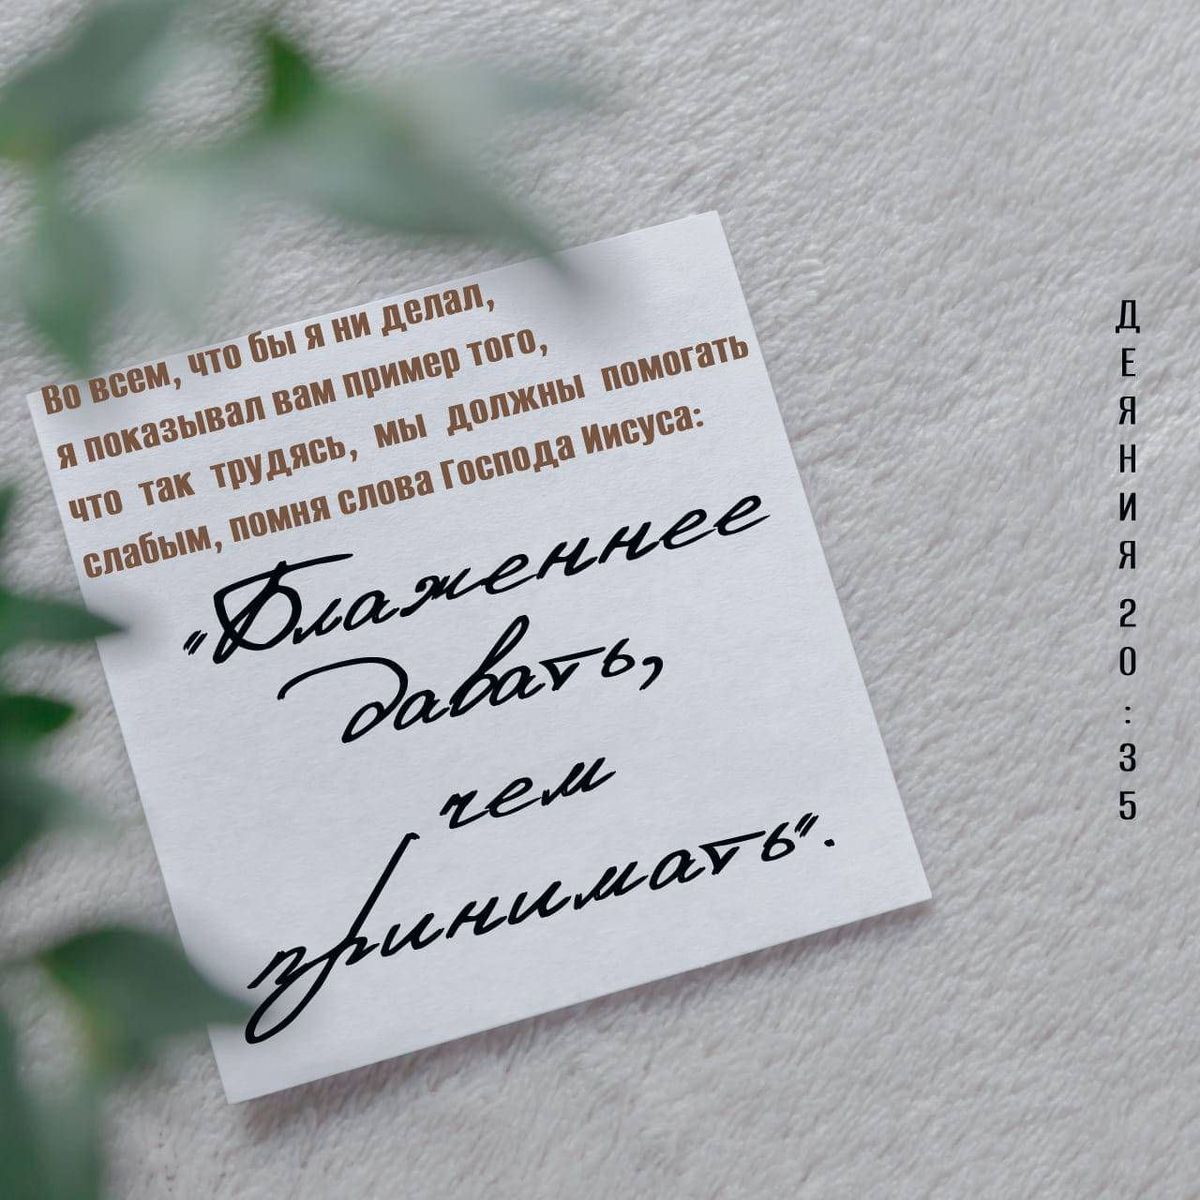 Во всем, что бы я ни делал,
я показывал вам пример того,
что так трудясь, мы должны помогать
слабым, помня слова Господа Иисуса:
"Блаженнее
давать,
чем
принимать".
ДЕЯНИЯ 20:35